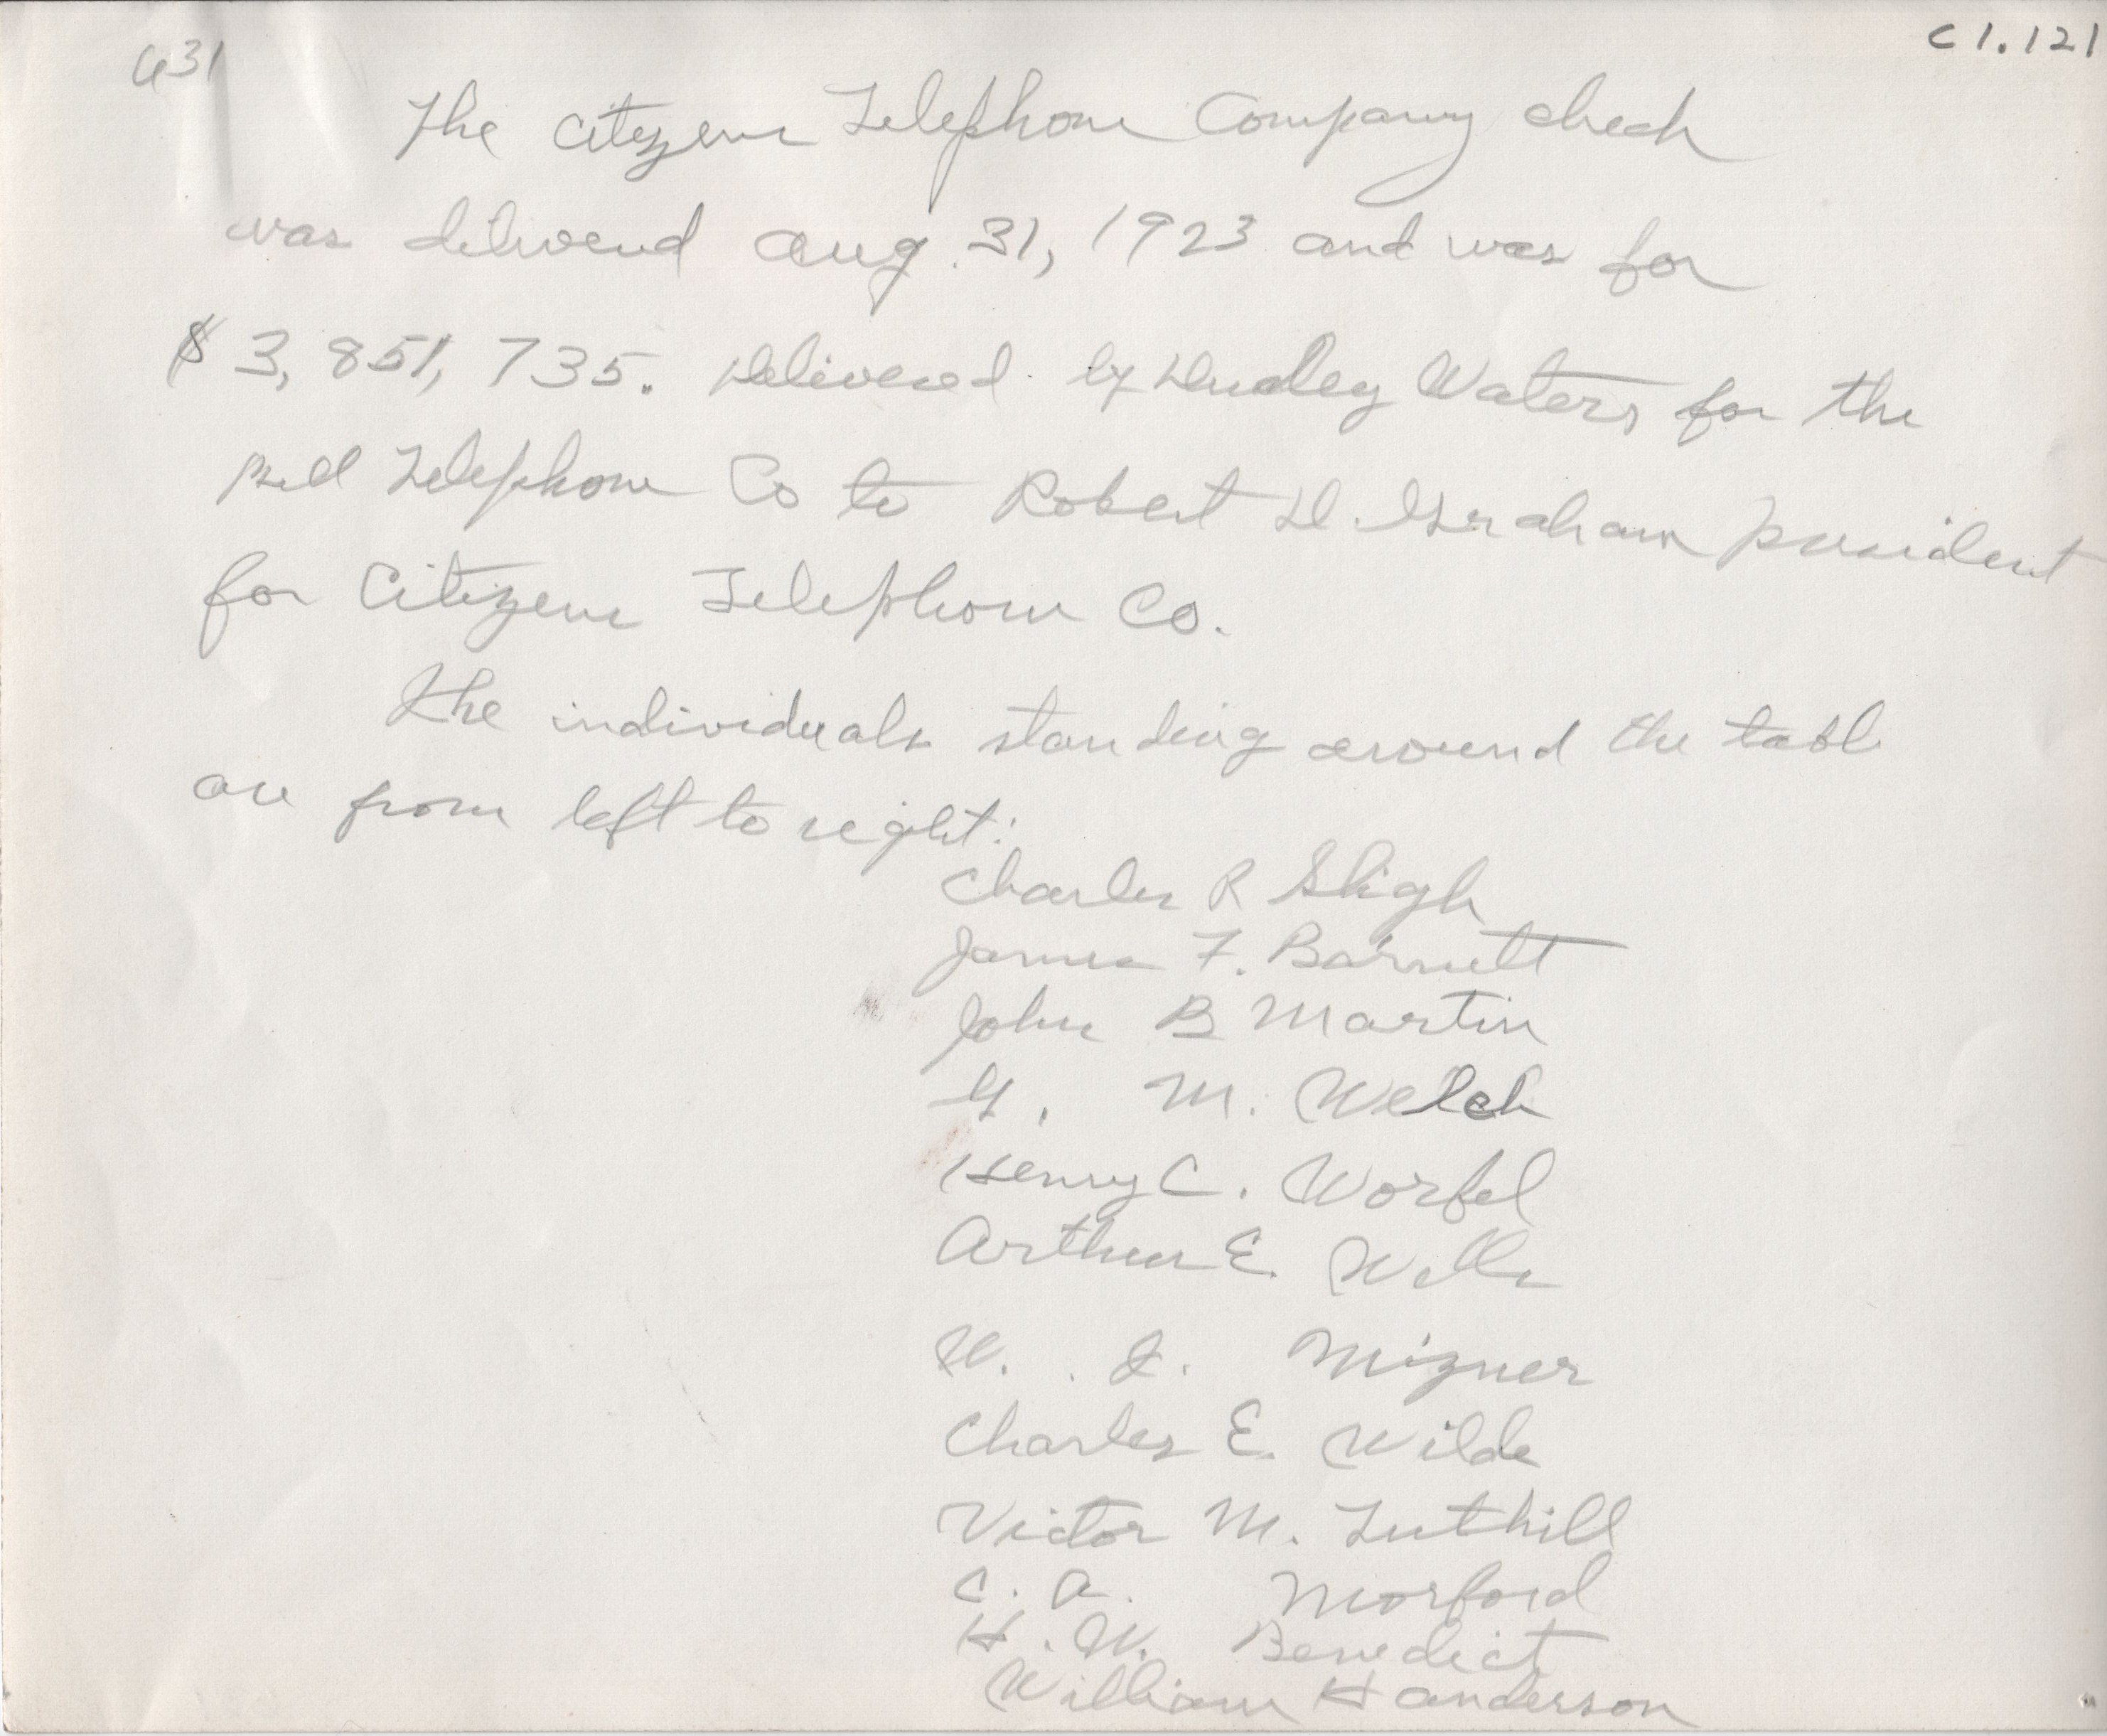 631
C1.121
The Citizens Telephone Company check
was delivered Aug. 31, 1923 and was for
$ 3,851,735. Delivered by Dudley Waters for the
Bell Telephone Co to Robert D. Graham president
for Citizens Telephone Co.
The individuals standing around the table
are from left to right:
Charles R Sligh
James F. Barnett
John B Martin
G. M. Welch
Henry C. Worfel
Arthur E. Wells
W. I. Mizner
Charles E. Wilde
Victor M. Tuthill
C. A. Morford
H. W. Benedict
William H Anderson